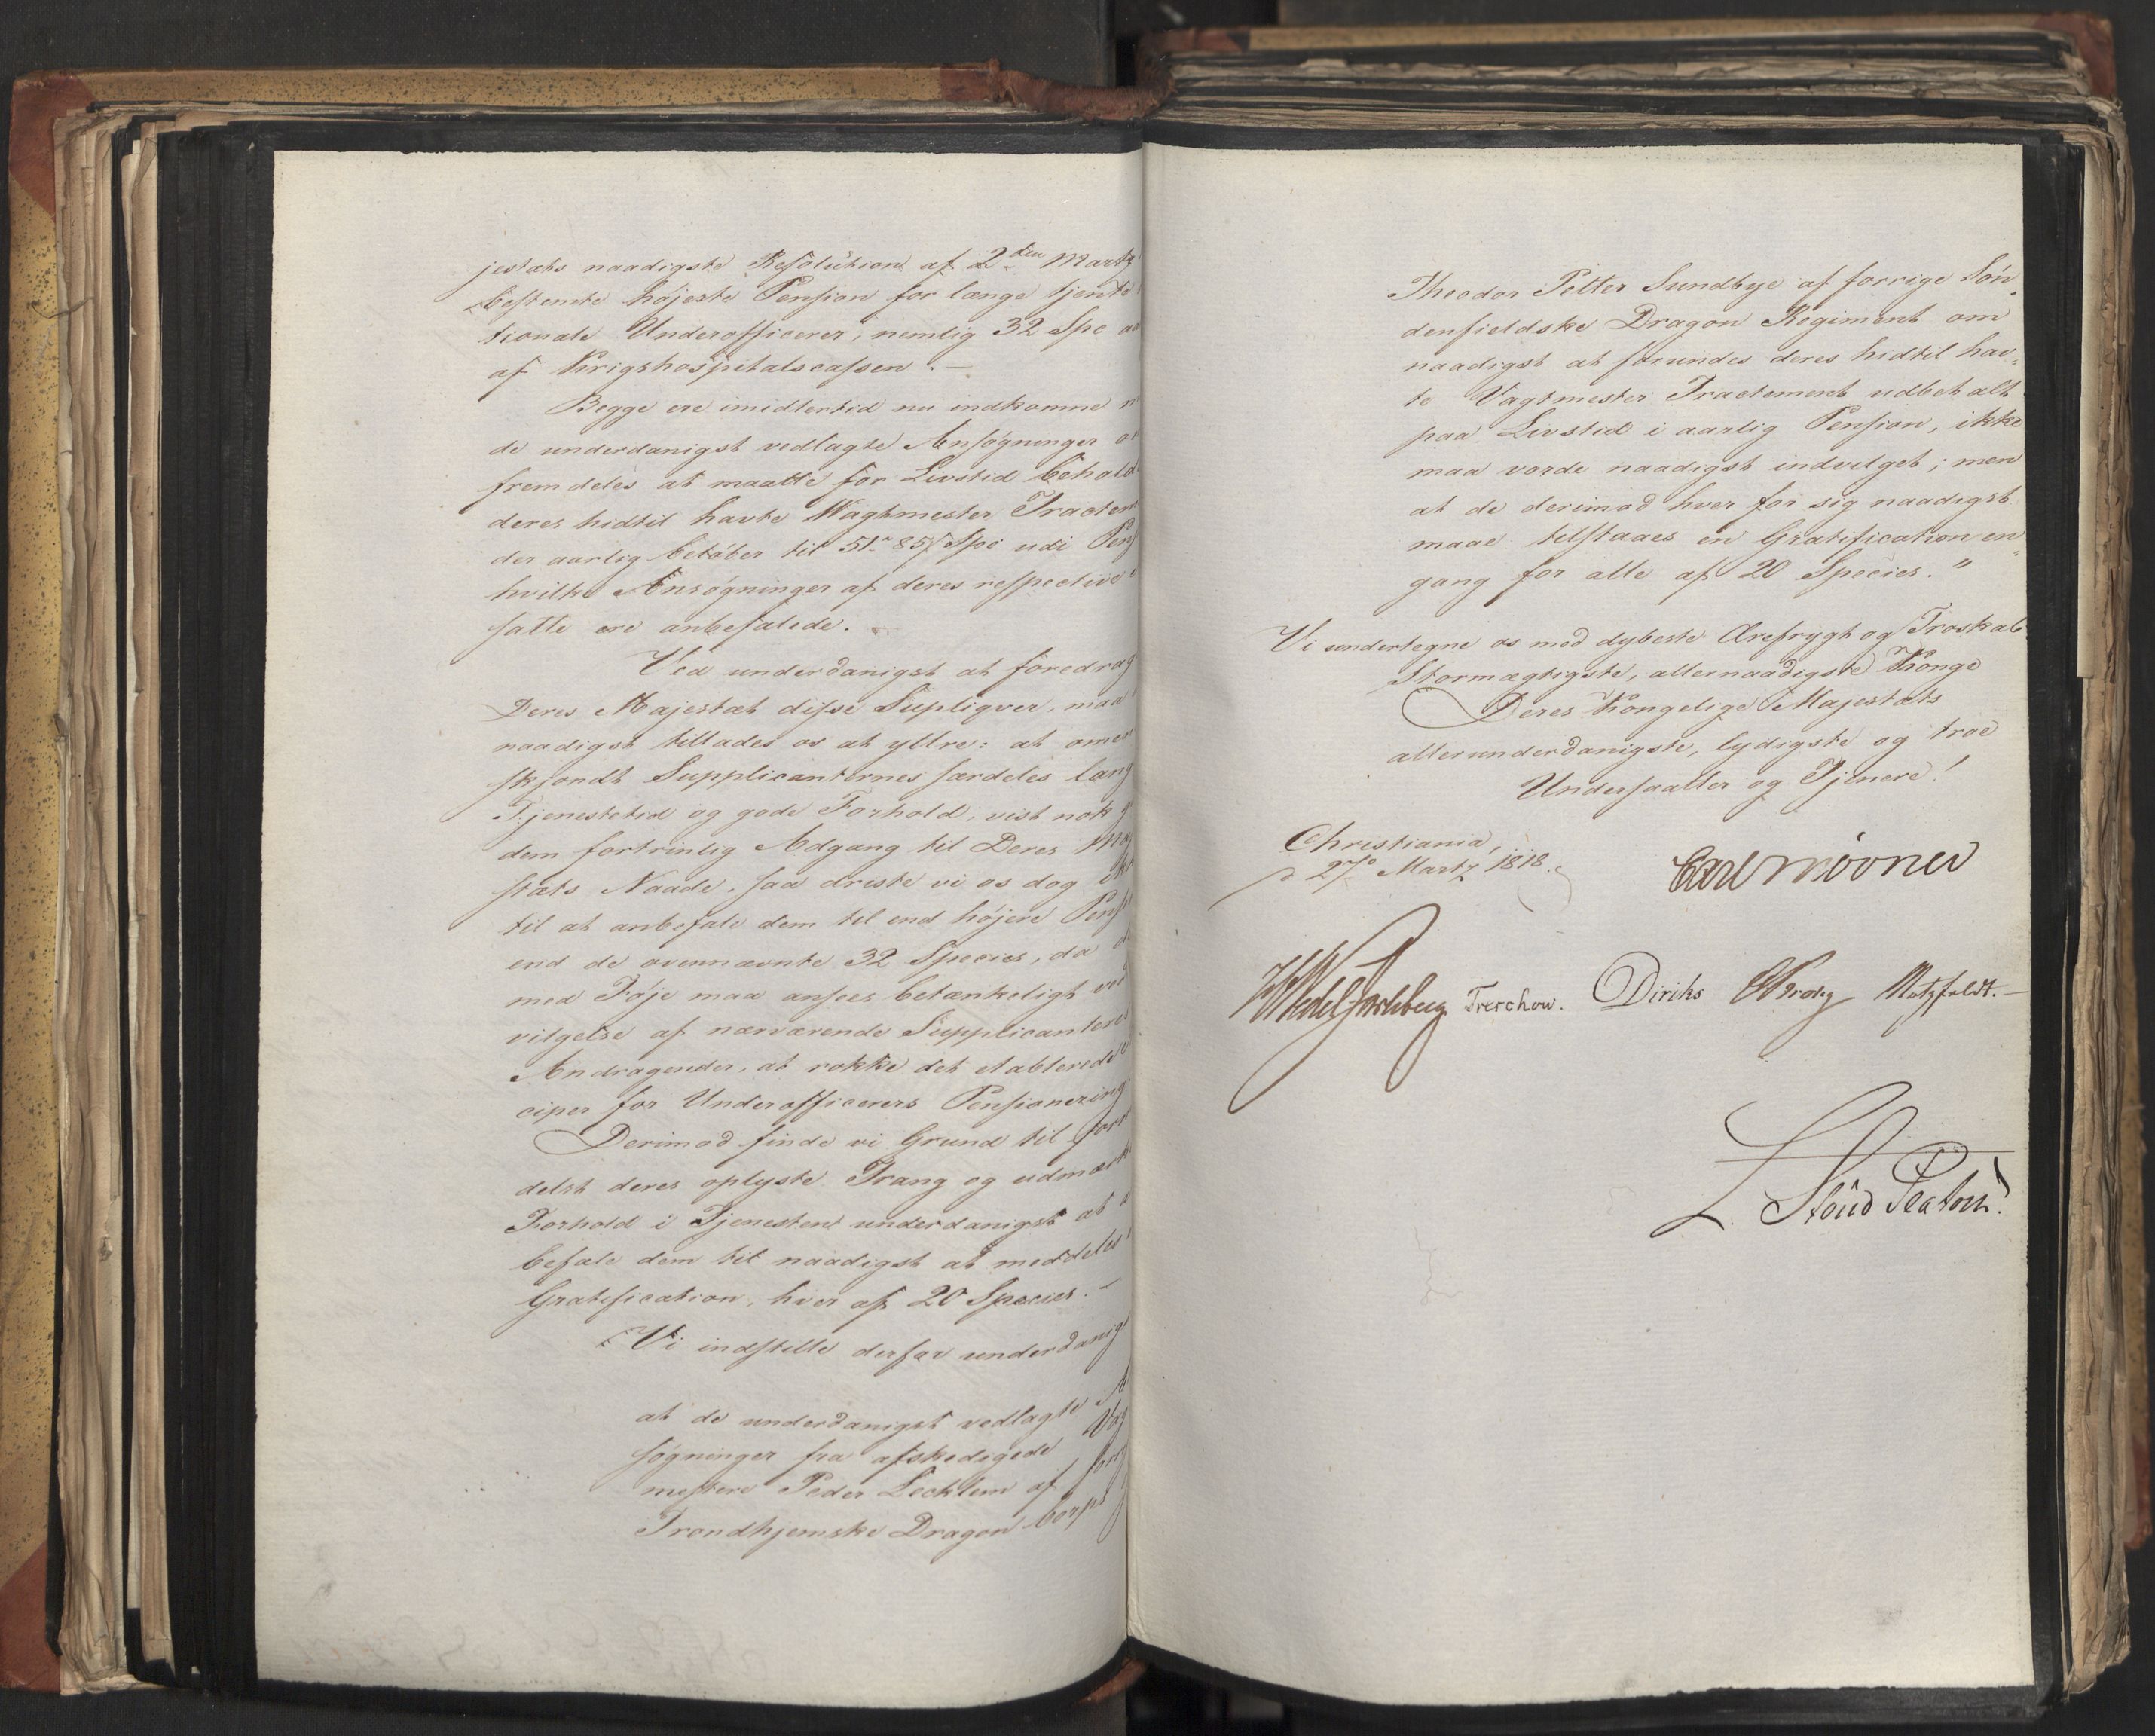 jestæts naadigste Resolution af 2den Martz
bestemte højeste Pension for længe tjente
tionale Underofficerer, nemlig 32 Spc
af Krigshospitalscassen. —
Begge ere imidlertid nu indkomne
de underdanigst vedlagte Ansøgninger
fremdeles at maatte for Livstid behold
deres hidtil havte Wagtmester Tractem
der aarlig beløber til 51 85/ Spc udi Pens
hvilke Ansøgninger af deres respective
satte ere anbefalede.
Ved underdanigst at foredrag
Deres Majestæt disse Supliqver, maa
naadigst tillades os at yttre: at omen
skjøndt Supplicanternes særdeles lang
Tjenestetid og gode Forhold, vist nok
dem fortrinlig Adgang til Deres Maj
stæts Naade, saa driste vi os dog ikke
til at anbefale dem til end højere Pens
end de ovennævnte 32 Species, da
med Føje maa ansees betænkeligt ved
vilgelse af nærværende Supplicanters
Andragender, at rokke det etablerede
ciper for Underofficerers Pensionering
Derimod finde vi Grund til form
delst deres oplyste Trang og udmærk
Forhold i Tjenesten underdanigst at
befale dem til naadigst at meddeles
Gratification, hver af 20 Species. —
Vi indstille derfor underdanigs
at de underdanigst vedlagte A
søgninger fra afskedigede Vag
mestere Peder Lecklem af forr
Trondhjemske Dragon Corps
Theodor Petter Sundbye af forrige Søn
denfieldske Dragon Regiment om
naadigst at forundes deres hidtil hav
te Vagtmester Tractement udbetalt
paa Livstid i aarlig Pension, ikke
maa vorde naadigst indvilget; men
at de derimod hver for sig naadigst
maae tilstaaes en Gratification en
gang for alle af 20 Species."
Vi undertegne os med dybeste Ærefrygt og Troskab
Stormægtigste, allernaadigste Konge
Deres Kongelige Majestæts
allerunderdanigste, lydigste og troe
Undersaatter og Tjenere!
Christiania,
d 27 Martz 1818.
Carl Mörner
Wedel Jarlsberg Treschow. Diriks Krog Motzfeldt. —
L. Stoud Platou